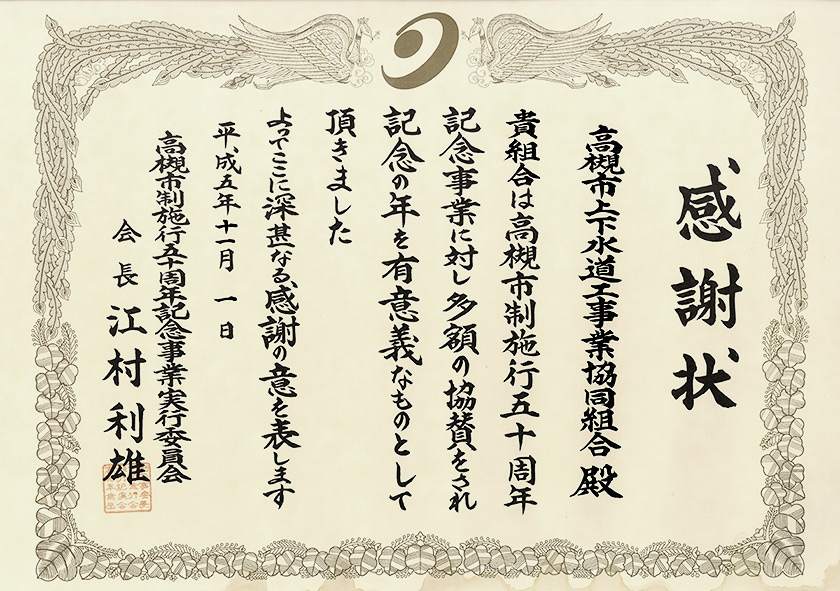 感謝状
高槻市上下水道工事業協同組合殿
貴組合は高槻市制施行五十周年
記念事業に対し多額の協賛をされ
記念の年を有意義なものとして
頂きました
よってここに深甚なる感謝の意を表します
平成五年十一月一日
高槻市制施行五十周年記念事業実行委員会
会長江村利雄